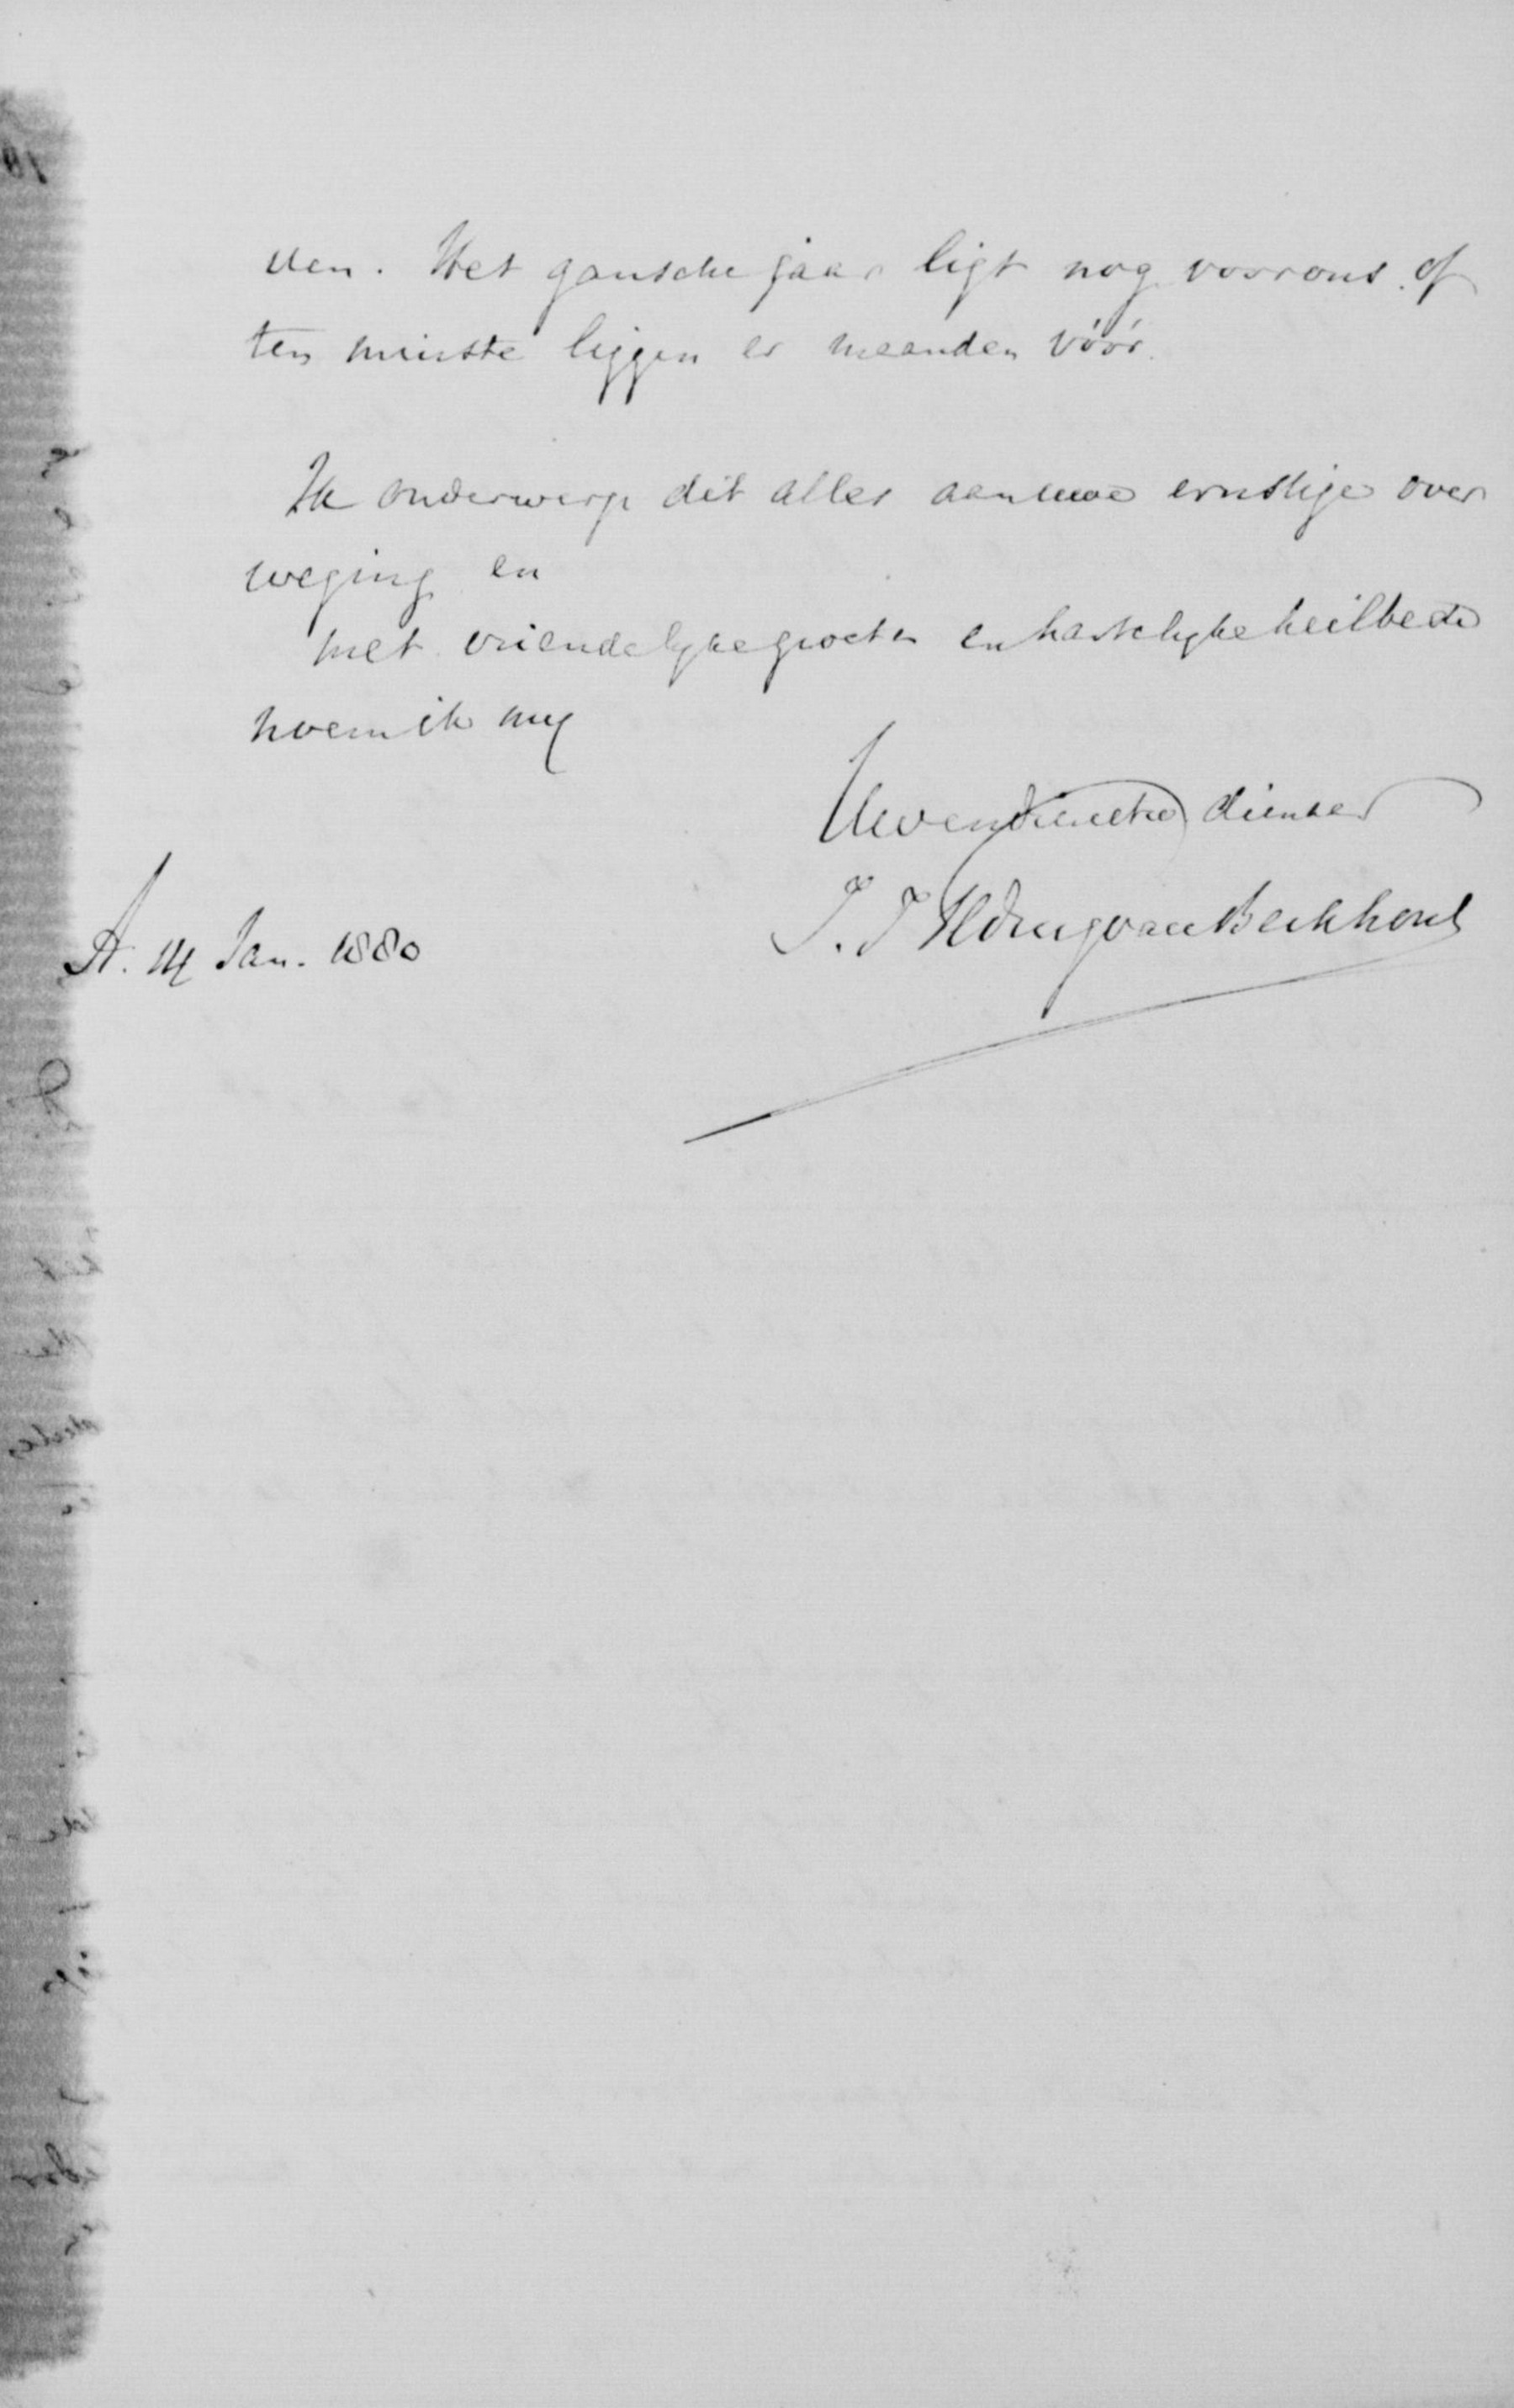 den. Het gansche jaar ligt nog voor ons of
ten minste liggen er maanden vóór.
Ik onderwerp dit alles aan uwe ernstige over
weging en
met vriendelyke groeten en hartelyke heilbede
noem ik my
Uw dienaar
A. 14 Jan. 1880
J. J. van Berkhout